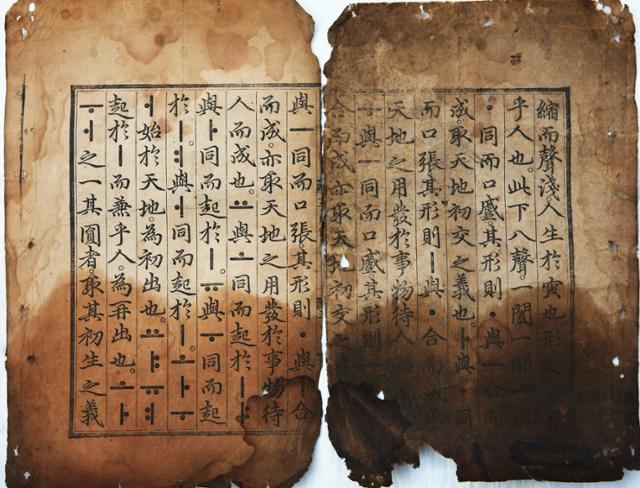 縮而聲淺。人生於寅也。形之
乎人也。此下八聲。一闔一闢
ㆍ同而口蹙。其形則ㆍ與ㅡ合而
成。取天地初交之義也。ㅏ與ㆍ同
而口張。其形則ㅣ與ㆍ合而成
天地之用發於事物待人而
ㅜ與ㅡ同而口蹙。其形則ㅡ
合而成。亦取天地初交之
與ㅡ同而口張。其形則ㆍ與ㅣ合
而成。亦取天地之用發於事物待
人而成也。ㅛ與ㅗ同而起於ㅣ。ㅑ
與ㅏ同而起於ㅣ。ㅠ與ㅜ同而起
於ㅣ。ㅕ與ㅓ同而起於ㅣ。ㅗㅏㅜ
ㅓ始於天地。為初出也。ㅛㅑㅠㅕ
起於ㅣ而兼乎人。為再出也。ㅗㅏ
ㅜㅓ之一其圓者。取其初生之義